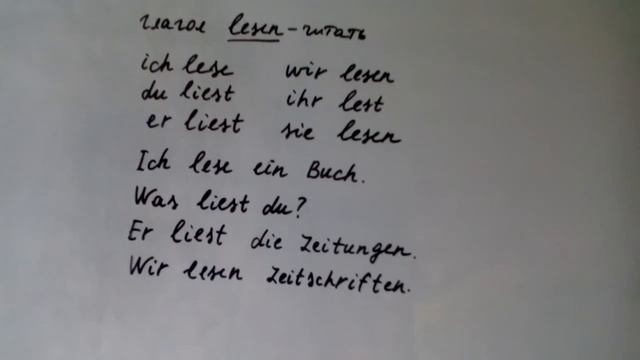 глагол lesen - читать
ich lese wir lesen
du liest ihr lest
er liest sie lesen
Ich lese ein Buch.
Was liest du?
Er liest die Zeitungen.
Wir lesen Zeitschriften.